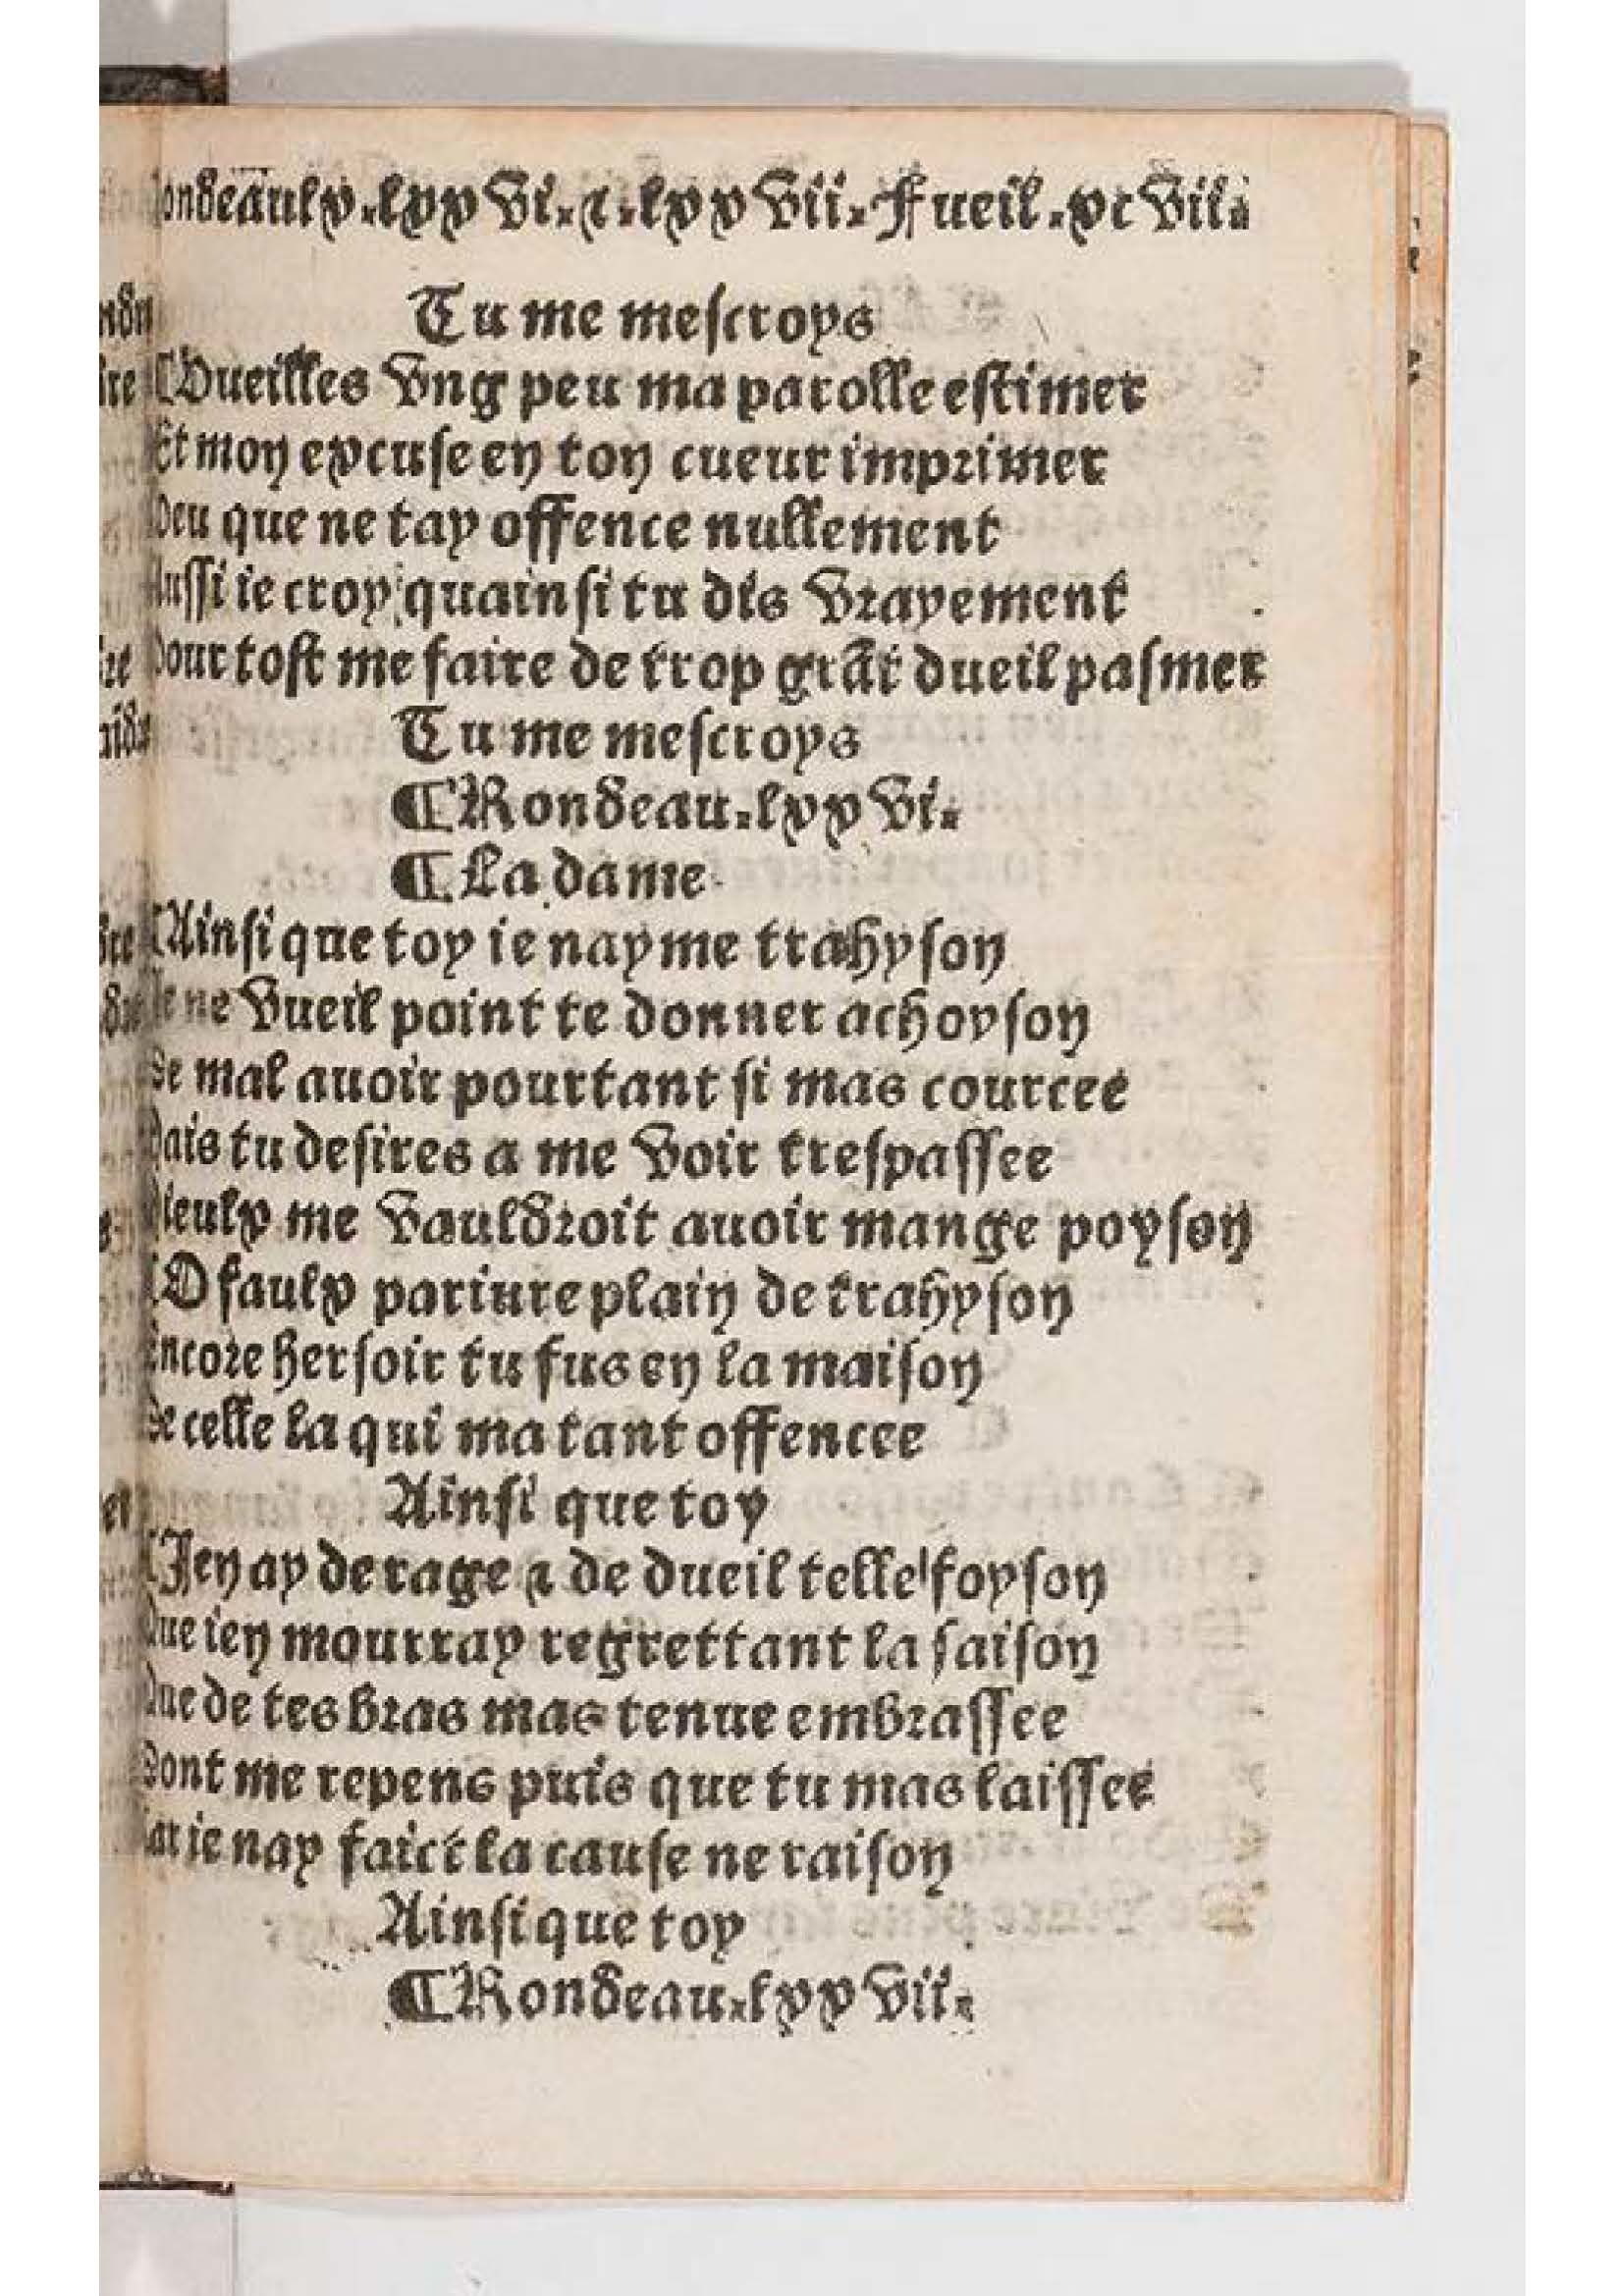 ondeaulx.lxxvi.⁊.lxxvii.Fueil.xcvii.
Tu me mescroys
¶Vueilles vng peu ma parolle estimer
Et mon excuse en ton cueur imprimer
Veu que ne tay offence nullement
Aussi ie croy quainsi tu dis vrayement
Pour tost me faire de trop grāt dueil pasmer
Tu me mescroys
¶Rondeau.lxxvi.
¶La dame
¶Ainsi que toy ie nayme trahyson
Je ne vueil point te donner achoyson
De mal auoir pourtant si mas courcee
Mais tu desires a me voir trespassee
Mieulx me vauldroit auoir mange poyson
¶O faulx pariure plain de trahyson
Encore hersoir tu fus en la maison
De celle la qui ma tant offencee
Ainsi que toy
¶Jen ay de rage ⁊ de dueil telle foyson
Que ien mourray regrettant la saison
Que de tes bras mas tenue embrassee
Dont me repens puis que tu mas laissee
Car ie nay faict la cause ne raison
Ainsi que toy
¶Rondeau.lxxvii.